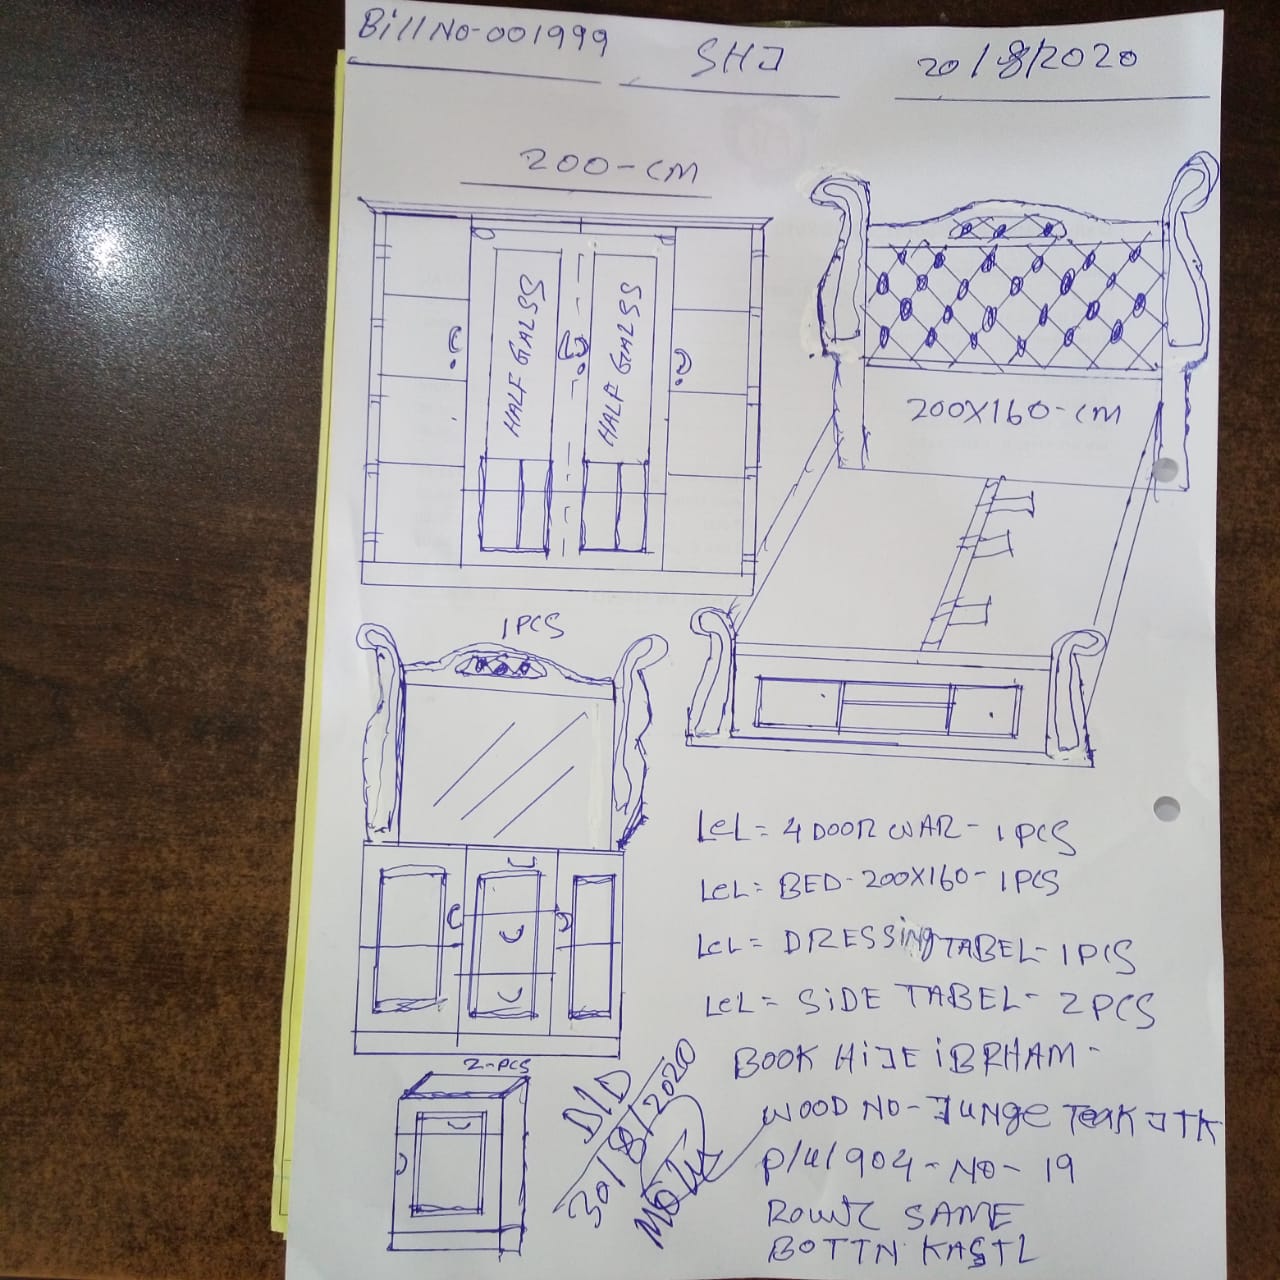 Bill No-001999
SHJ
20/8/2020
200-CM
HALF GALSS
HALF GALSS
200X160-CM
1PCS
LCL= 4 DOOR WAR- 1 PCS
LCL= BED-200X160-1PCS
LCL= DRESSiNg TABEL-1PCS
LCL= SiDE TABEL- 2 PCS
2-PCS
BOOK HIJE iBRHAM-
D/D
30/8/2020
WOOD NO-JUNGE TEAK JTK
P/U/904-NO-19
SAME
BOTTN KASTL